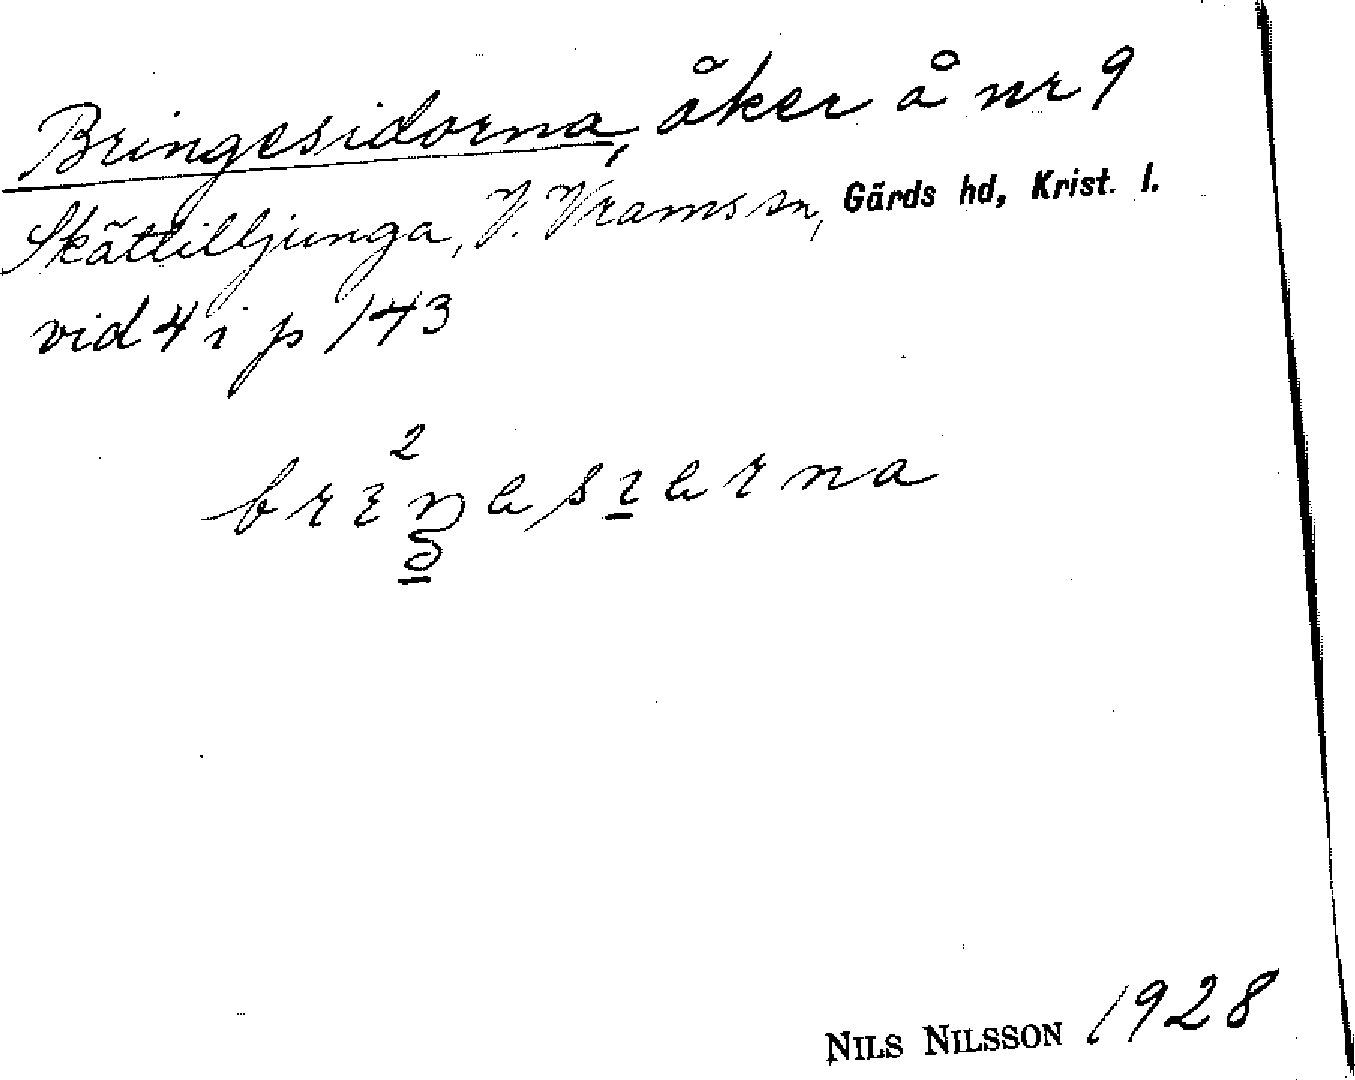 Bringesidorna, åker å nr 9
Skättilljunga, V. Vrams sn, Gärds hd, Krist. l.
vid 4 i p 143
NILS NILSSON 1928